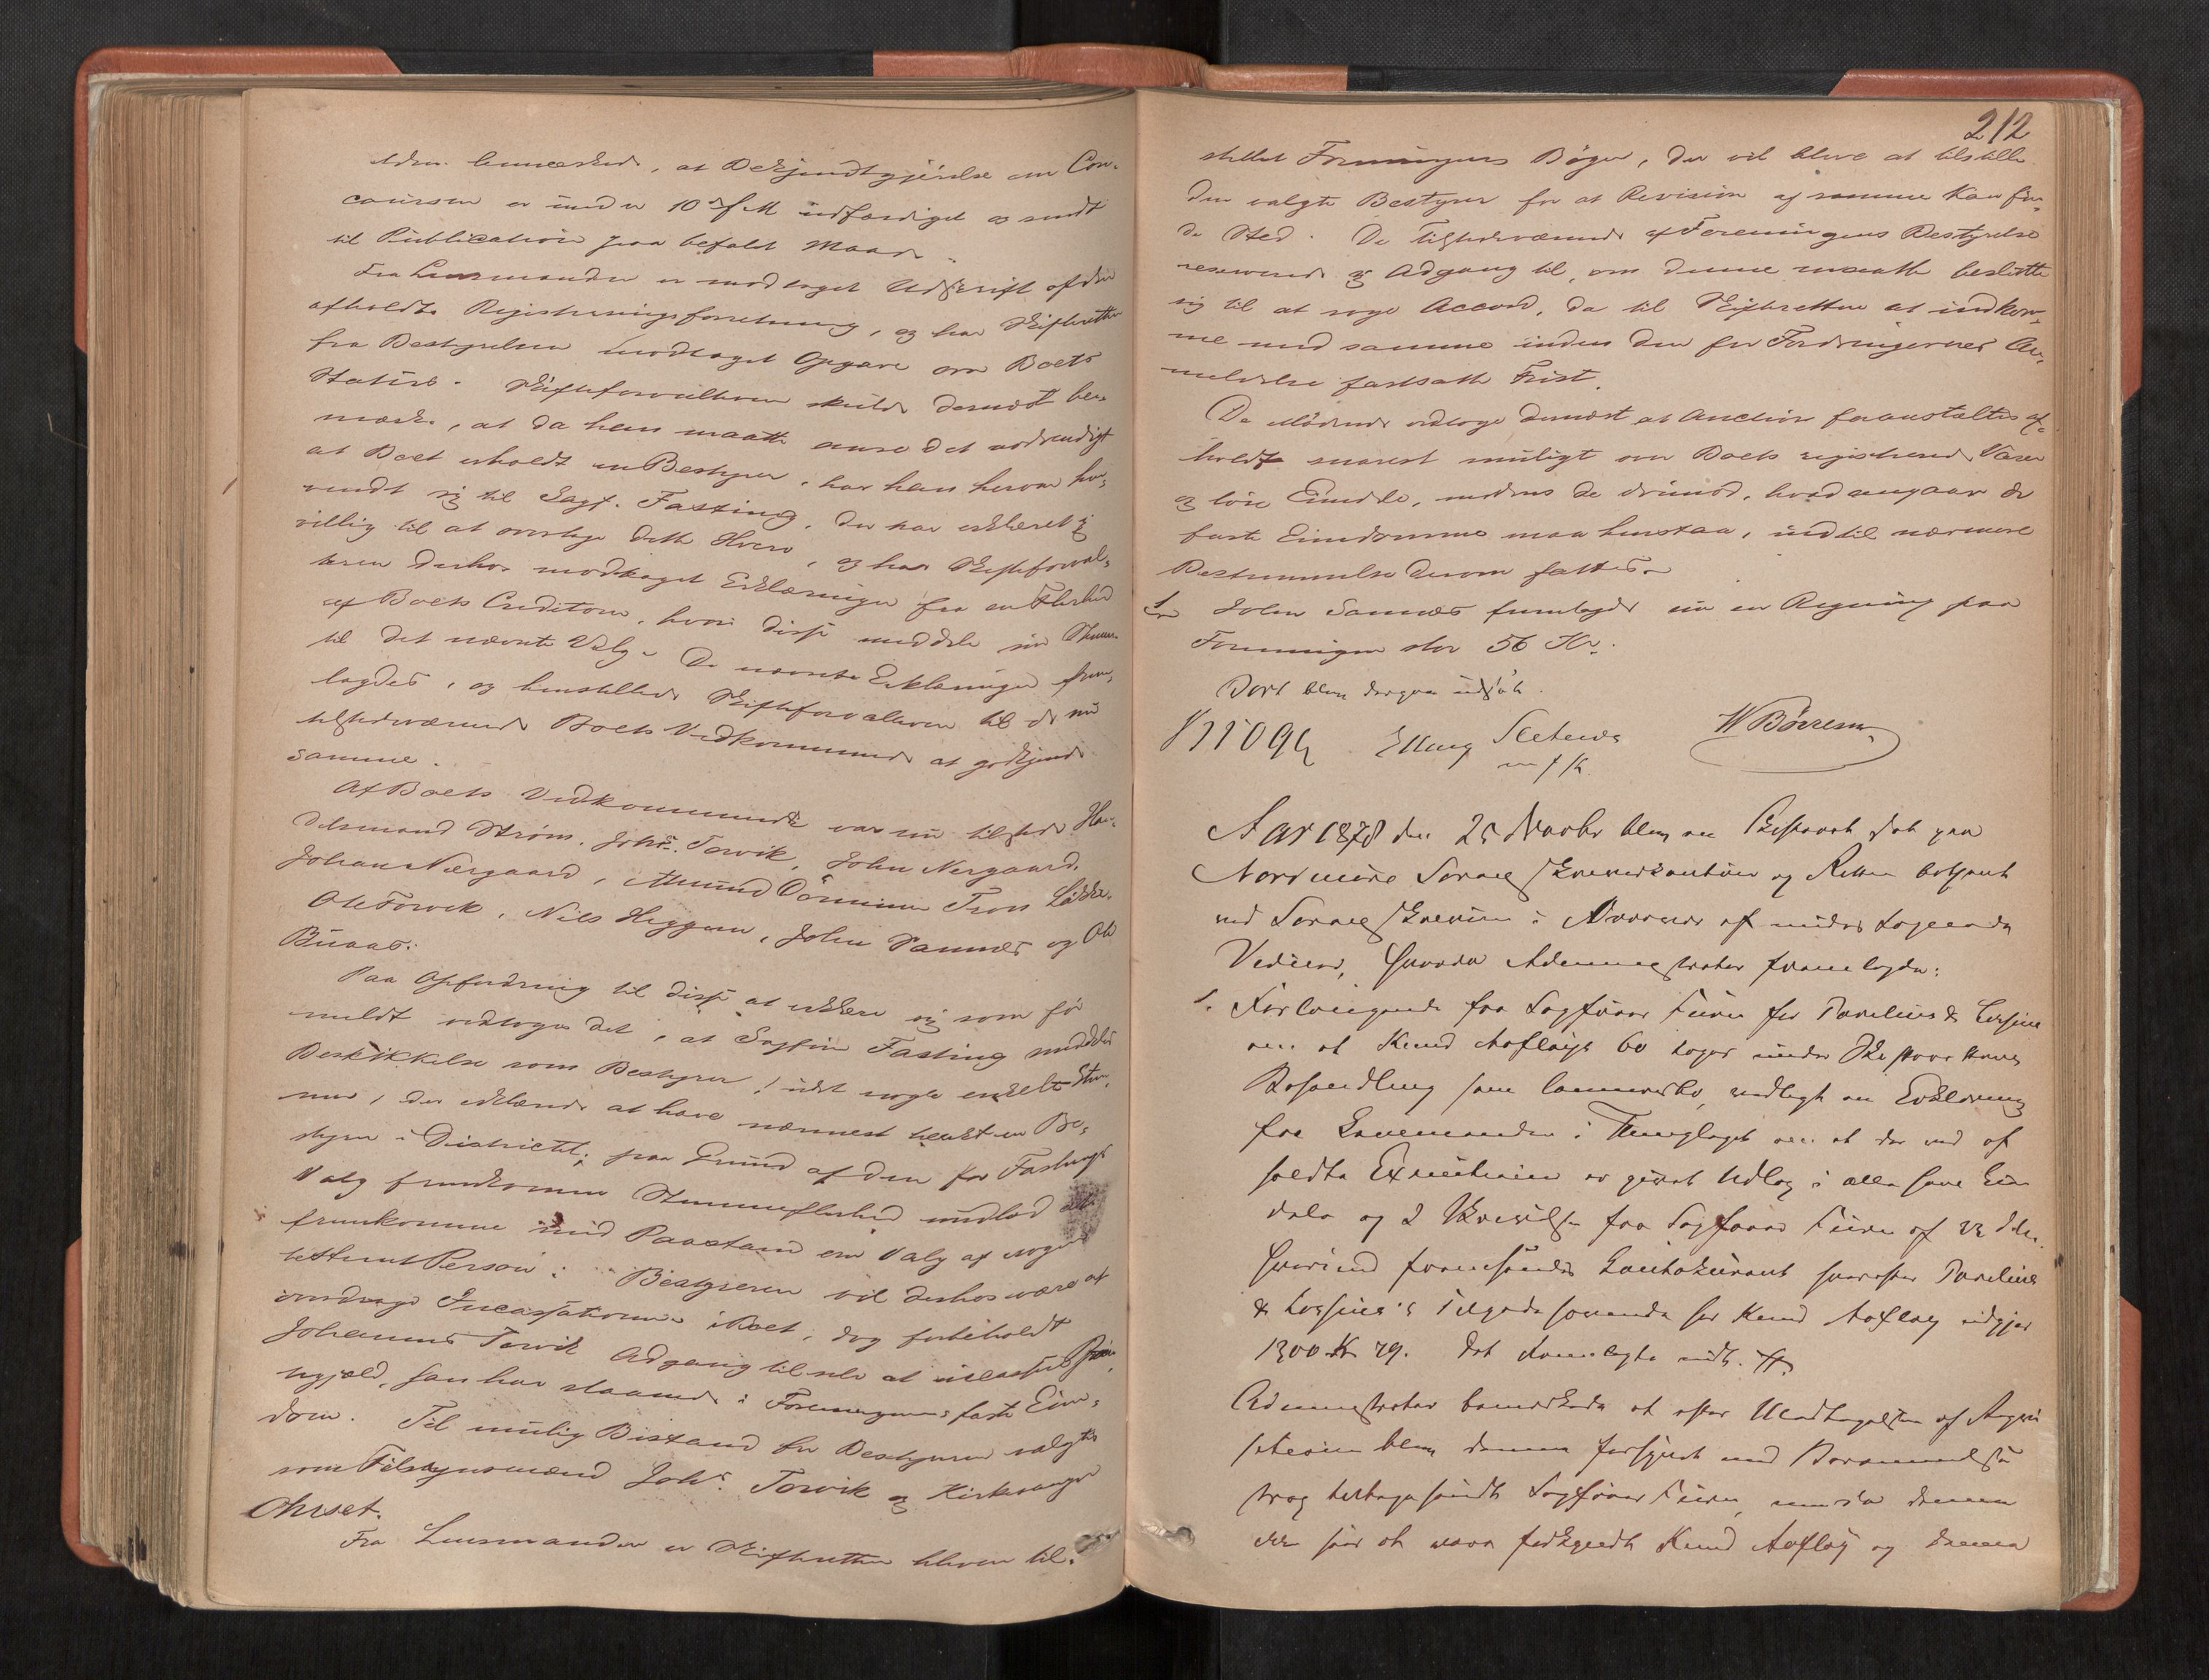 bemærkede, at Bekjendtgjørelse om Con-
coursen er under 10 d. M. udfærdiget og sendt
til Publication paa befalet Maade.
Fra Lensmanden er modtaget Udskrift af den
afholdte Registreringsforretning, og har Skifteretten
fra Bestyrelsen modtaget Opgave over Boets
Status. Skifteforvalteren skulde dernæst be-
mærke, at da han maatte anse det nødvendigt
at Boet erholdt en Bestyrer, har han herom hen-
vendt sig til Sagf. Fasting, der har erklæret sig
villig til at overtage dette Hverv, og har Skifteforval-
teren derhos modtaget Erklæringer fra en Flerhed
af Boets Creditorer, hvori disse meddele sin Stemme
til det nævnte Valg. De nævnte Erklæringer frem-
lagdes, og henstillede Skifteforvalteren til de nu
tilstedeværende Boets Vedkommende at godkjende
samme.
Af Boets Vedkommende var nu tilstede Han-
delsmand Strøm, Johs. Torvik, John Nergaard,
Johan Nergaard, Amund Tron
Ole Torvik, Nils Heggem, John Sannes og Ole
Buaas.
Paa Opfordring til disse at erklære sig som før
meldt vedtoges det, at Sagfører Fasting meddeles
Beskikkelse som Bestyrer, idet nogle enkelte Stem-
mer, der erklærede at have nærmest tænkt en Be-
styrer i Districtet, paa Grund af den for Fastings
Valg fremkomne Stemmeflerhed undlod at
fremkomme med Paastand om Valg af nogen
bestemt Person. Bestyreren vil derhos være at
overdrage Incassationen i Boet, dog forbeholdt
Johannes Torvik Adgang til selv at incassere
han har staaende i Foreningens faste Eien-
dom. Til mulig Bistand for Bestyreren valgtes
som Tilsynsmænd Johs. Torvik og Kirkesanger
Ohrset.
Fra Lensmanden er Skifteretten bleven til-
212
stillet Foreningens Bøger, der vil blive at tilstille
den valgte Bestyrer for at Revision af samme kan fin-
de Sted. De Tilstedeværende af Foreningens Bestyrelse
reserverede sig Adgang til, om denne maatte beslutte
sig til at søge Accord, da til Skifteretten at indkom-
me med samme inden den for Fordringernes An-
meldelse fastsatte Frist.
De Mødende vedtoge dernæst at Auction foranstaltes af-
holdt snarest muligt over Boets registrerede Varer
og løse Eiendele, medens de derimod, hvad angaar de
faste Eiendomme maa henstaa, indtil nærmere
Bestemmelse derom fattes.
1 John Sannes fremlagde nu en Regning paa
Foreningen stor 56 Kr.
Boet blev derpaa udsat.
Krogh Elling Sæternes W Börresen
m f P.
Aar 1878 den 25 Novbr blev en Skifteret sat paa
Nordmöre Sorenskriverkontoir og Retten betjent
ved Sorenskriveren i Nærvær af undertegnede
Vidner, hvorda Administrator fremlagde:
1. Forlangende fra Sagfører Fürn for
om at Knud Aasløys Bo tages under Skifterettens
Behandling som Concursbo, vedlagt en Erklæring
fra Lensmanden i Thinglaget om at der ved af
holdte Execution er gjort Udlæg i alle hans Eien
dele og 2 Skrivelse fra Sagfører Fürn af 22 ds.
hvorved fremsendes Contokurant hvorefter
Tilgodehavende hos Knud Aasløy udgjør
1300 Kr 79. Det fremlagte
Administrator bemærkede at efter Modtagelsen af
blev denne forsynet med
tilbagesendt Sagfører Fürn,
at være forkyndt Knud Aasløy og denne